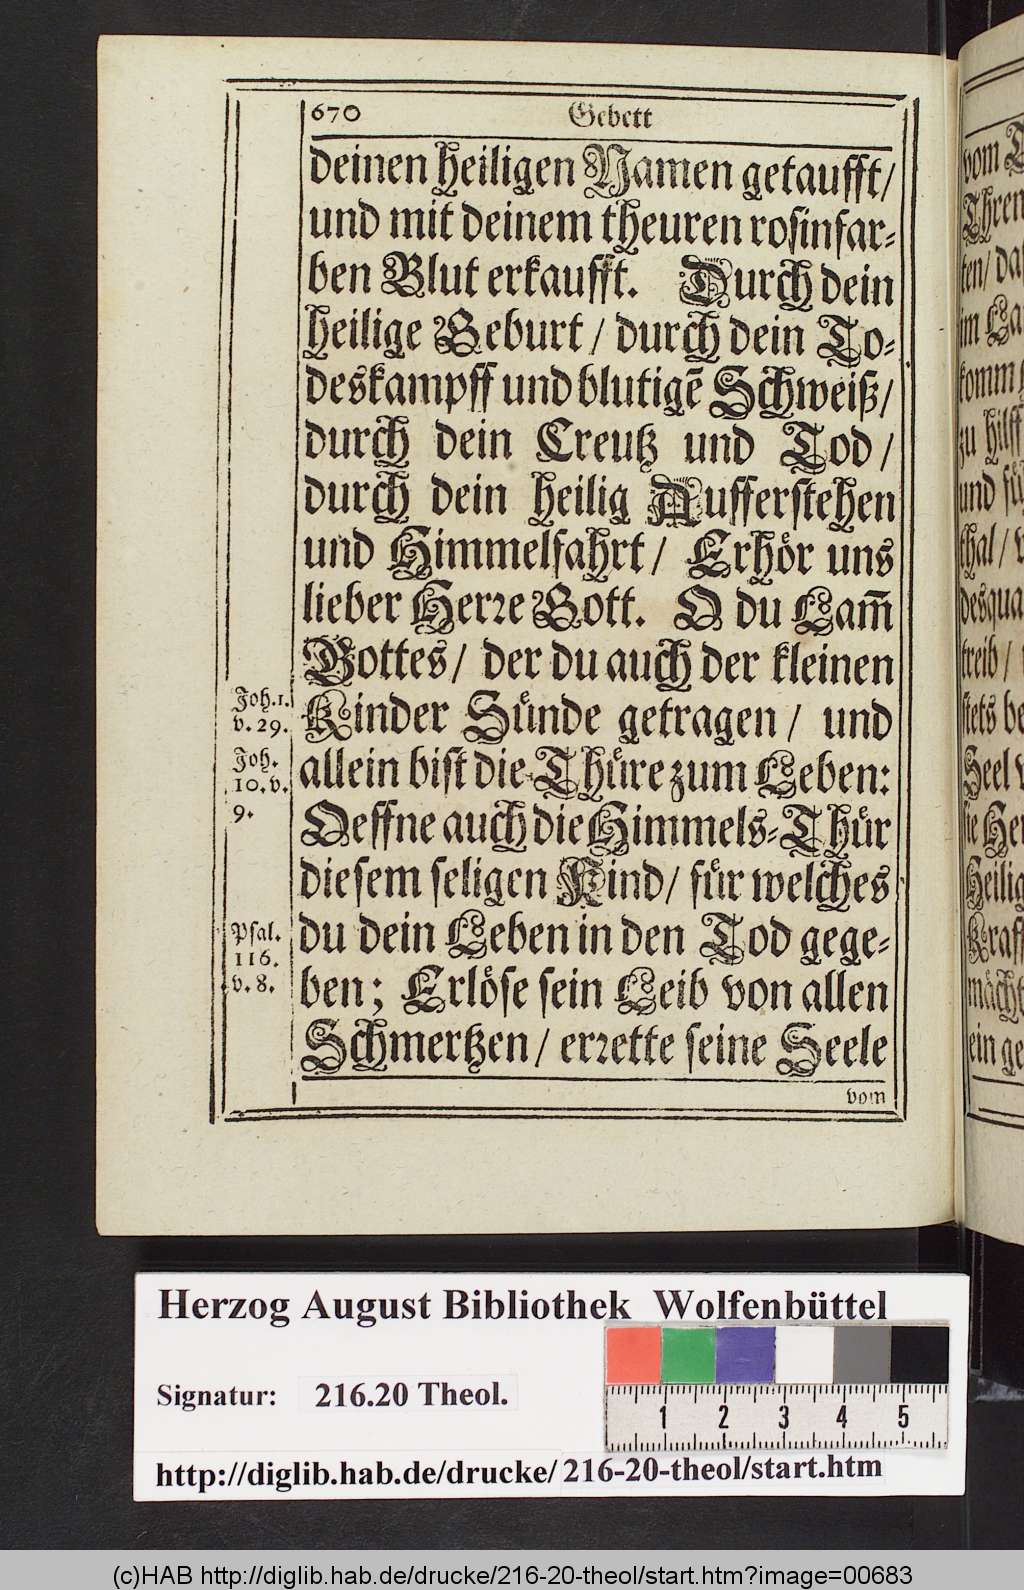 670 Gebett
deinen heiligen Namen getaufft/
und mit deinem theuren rosinfar-
ben Blut erkaufft. Durch dein
heilige Geburt / durch dein To-
deskampff und blutigẽ Schweiß/
durch dein Creutz und Tod /
durch dein heilig Aufferstehen
und Himmelfahrt / Erhör uns
lieber Herre Gott. O du Lam̃
Gottes / der du auch der kleinen
Joh. 1.
v. 29.
Kinder Sünde getragen / und
Joh.
10. v.
9.
allein bist die Thüre zum Leben:
Oeffne auch die Himmels-Thür
diesem seligen Kind / für welches
Psal.
116.
v. 8.
du dein Leben in den Tod gege-
ben; Erlöse sein Leib von allen
Schmertzen / errette seine Seele
vom
vom
Thren
ten/ da
im
komm
zu hilff
und fü
thal /
desqua
treib /
stets be
Seel
sie
Heilig
Kraff
mächt
ein ge
Herzog August Bibliothek Wolfenbüttel
Signatur: 216.20 Theol.
1 2 3 4 5
http://diglib.hab.de/drucke/216-20-theol/start.htm
(c)HAB http://diglib.hab.de/drucke/216-20-theol/start.htm?image=00683